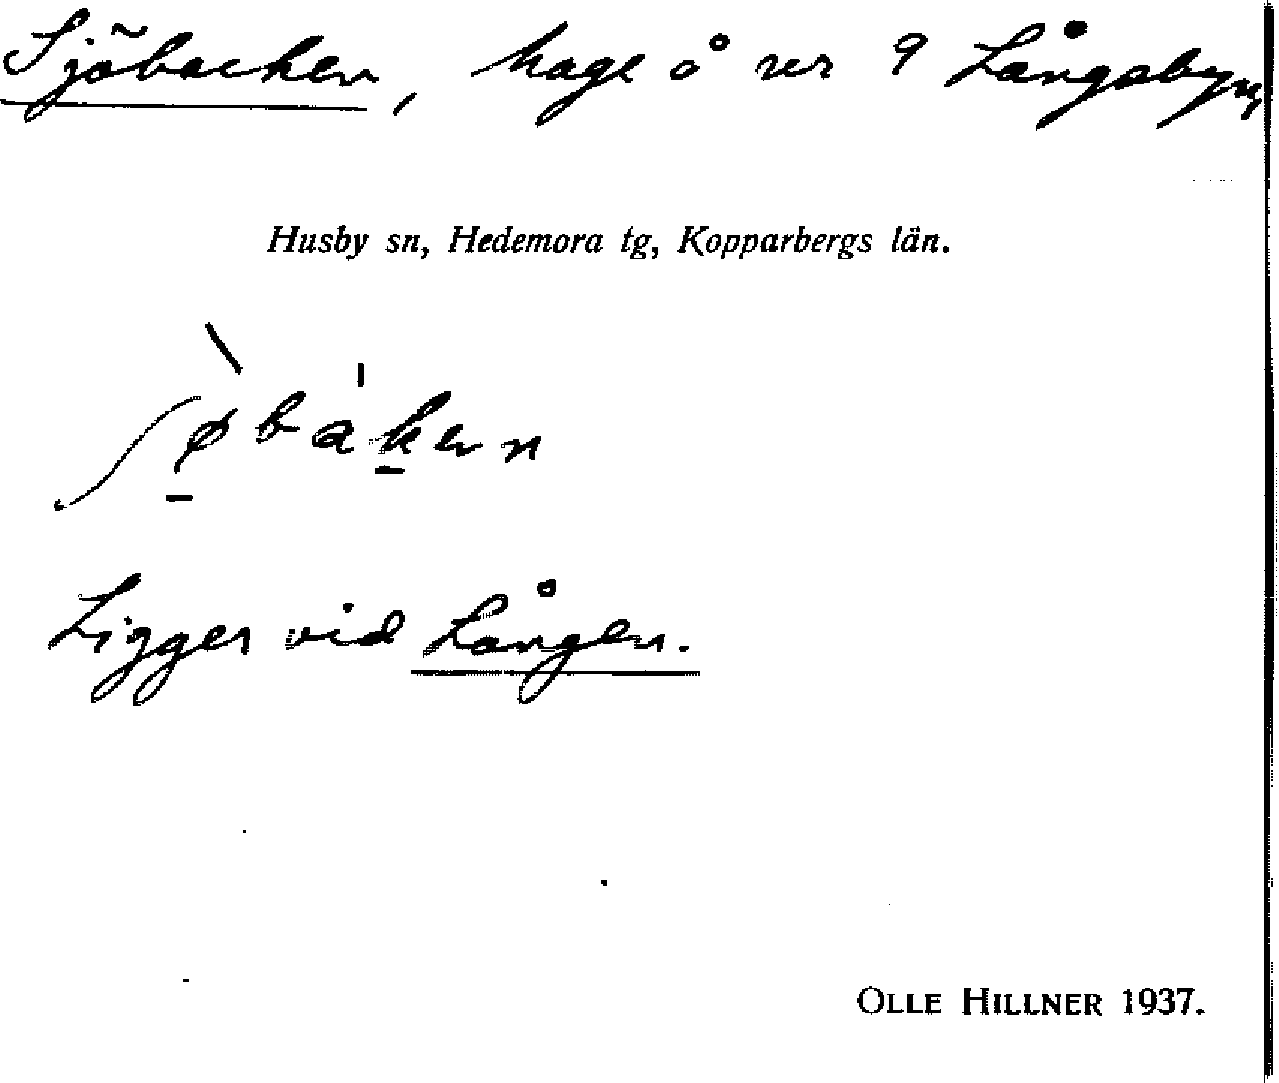 Sjöbacken, hage å nr 9 Långsbyn,
Husby sn, Hedemora tg, Kopparbergs län.
ʃø̱bàḵen
Ligger vid Lången.
OLLE HILLNER 1937.